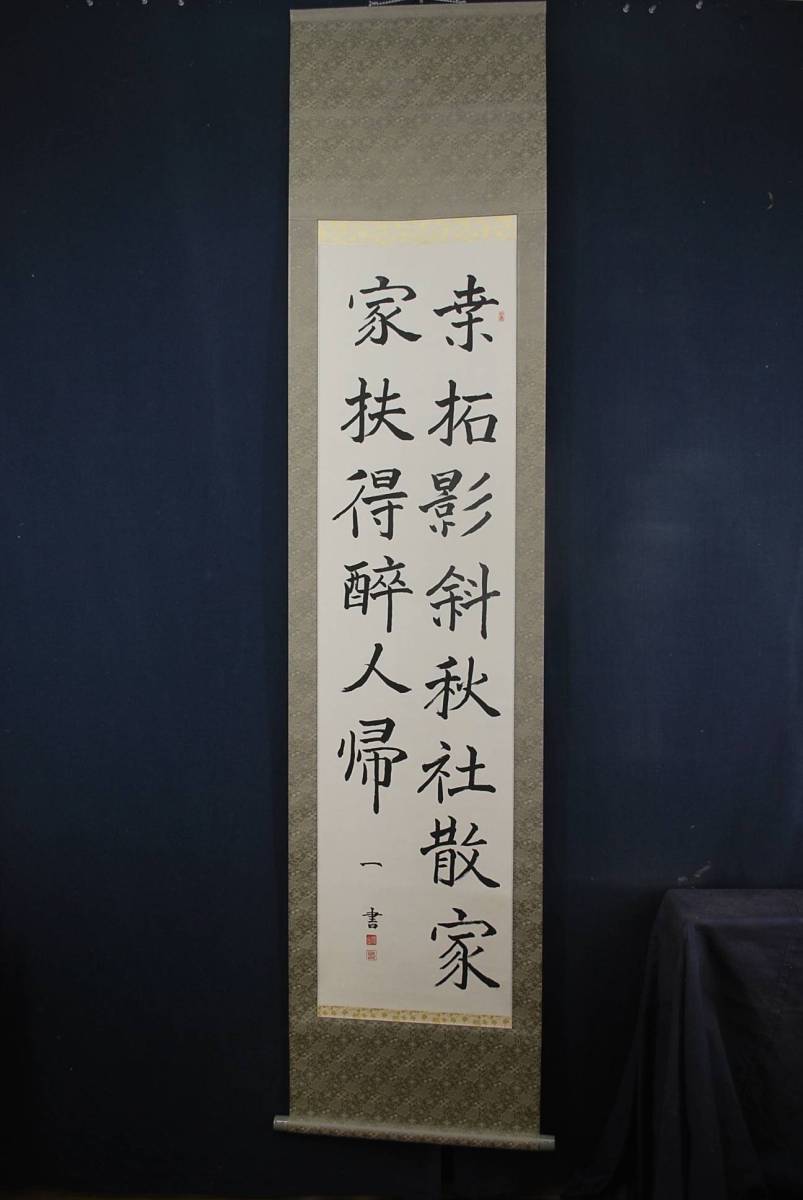 桒拓影斜秋社散家
家扶得醉人帰
一書